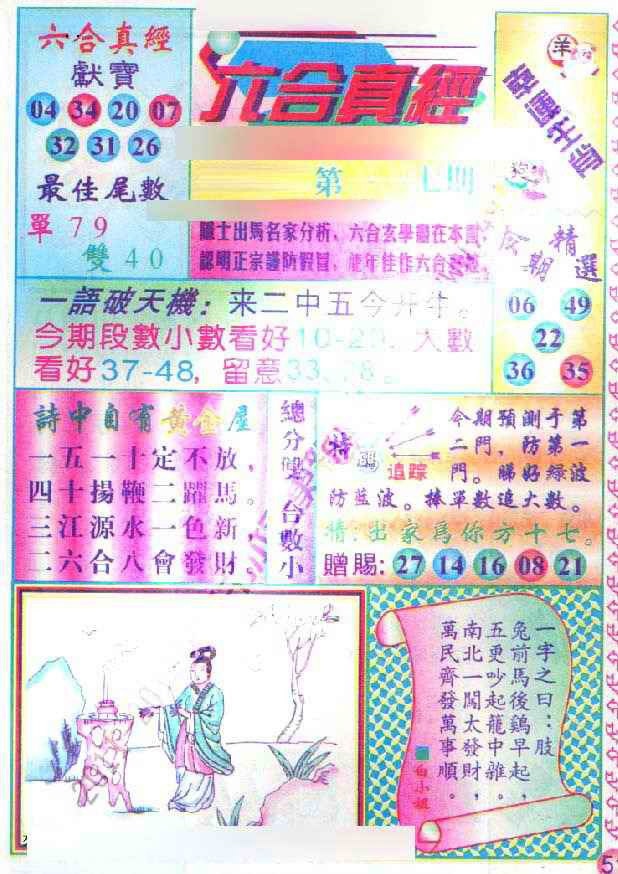 六合真經
獻寶
04 34 20 07
32 31 26
最佳尾數
單 7 9
雙 4 0
六合真經
第 七期
羊
出馬名家分析，六合玄學盡在本
認明正宗謹防假冒，佳作六合
期 精選
06 49
22
36 35
一語破天機：来二中五今开牛。
今期段數小數看好10-20，大數
看好37-48，留意33、
詩中自有黃金屋
一五一十定不放，
四十揚鞭二躍馬。
三江源水一色新，
二六合八會發財。
總分雙
合數小
特碼追踪
今期預測于第
二門，防第一
門。睇好綠波
防藍波。揍單數追大數。
出家為你方十七。
贈賜：27 14 16 08 21
一字之曰：肢
兔前馬後鷄早起，
五更吵起龍中雜。
南北一闖太發財，
萬民齊發萬事順。
白小姐